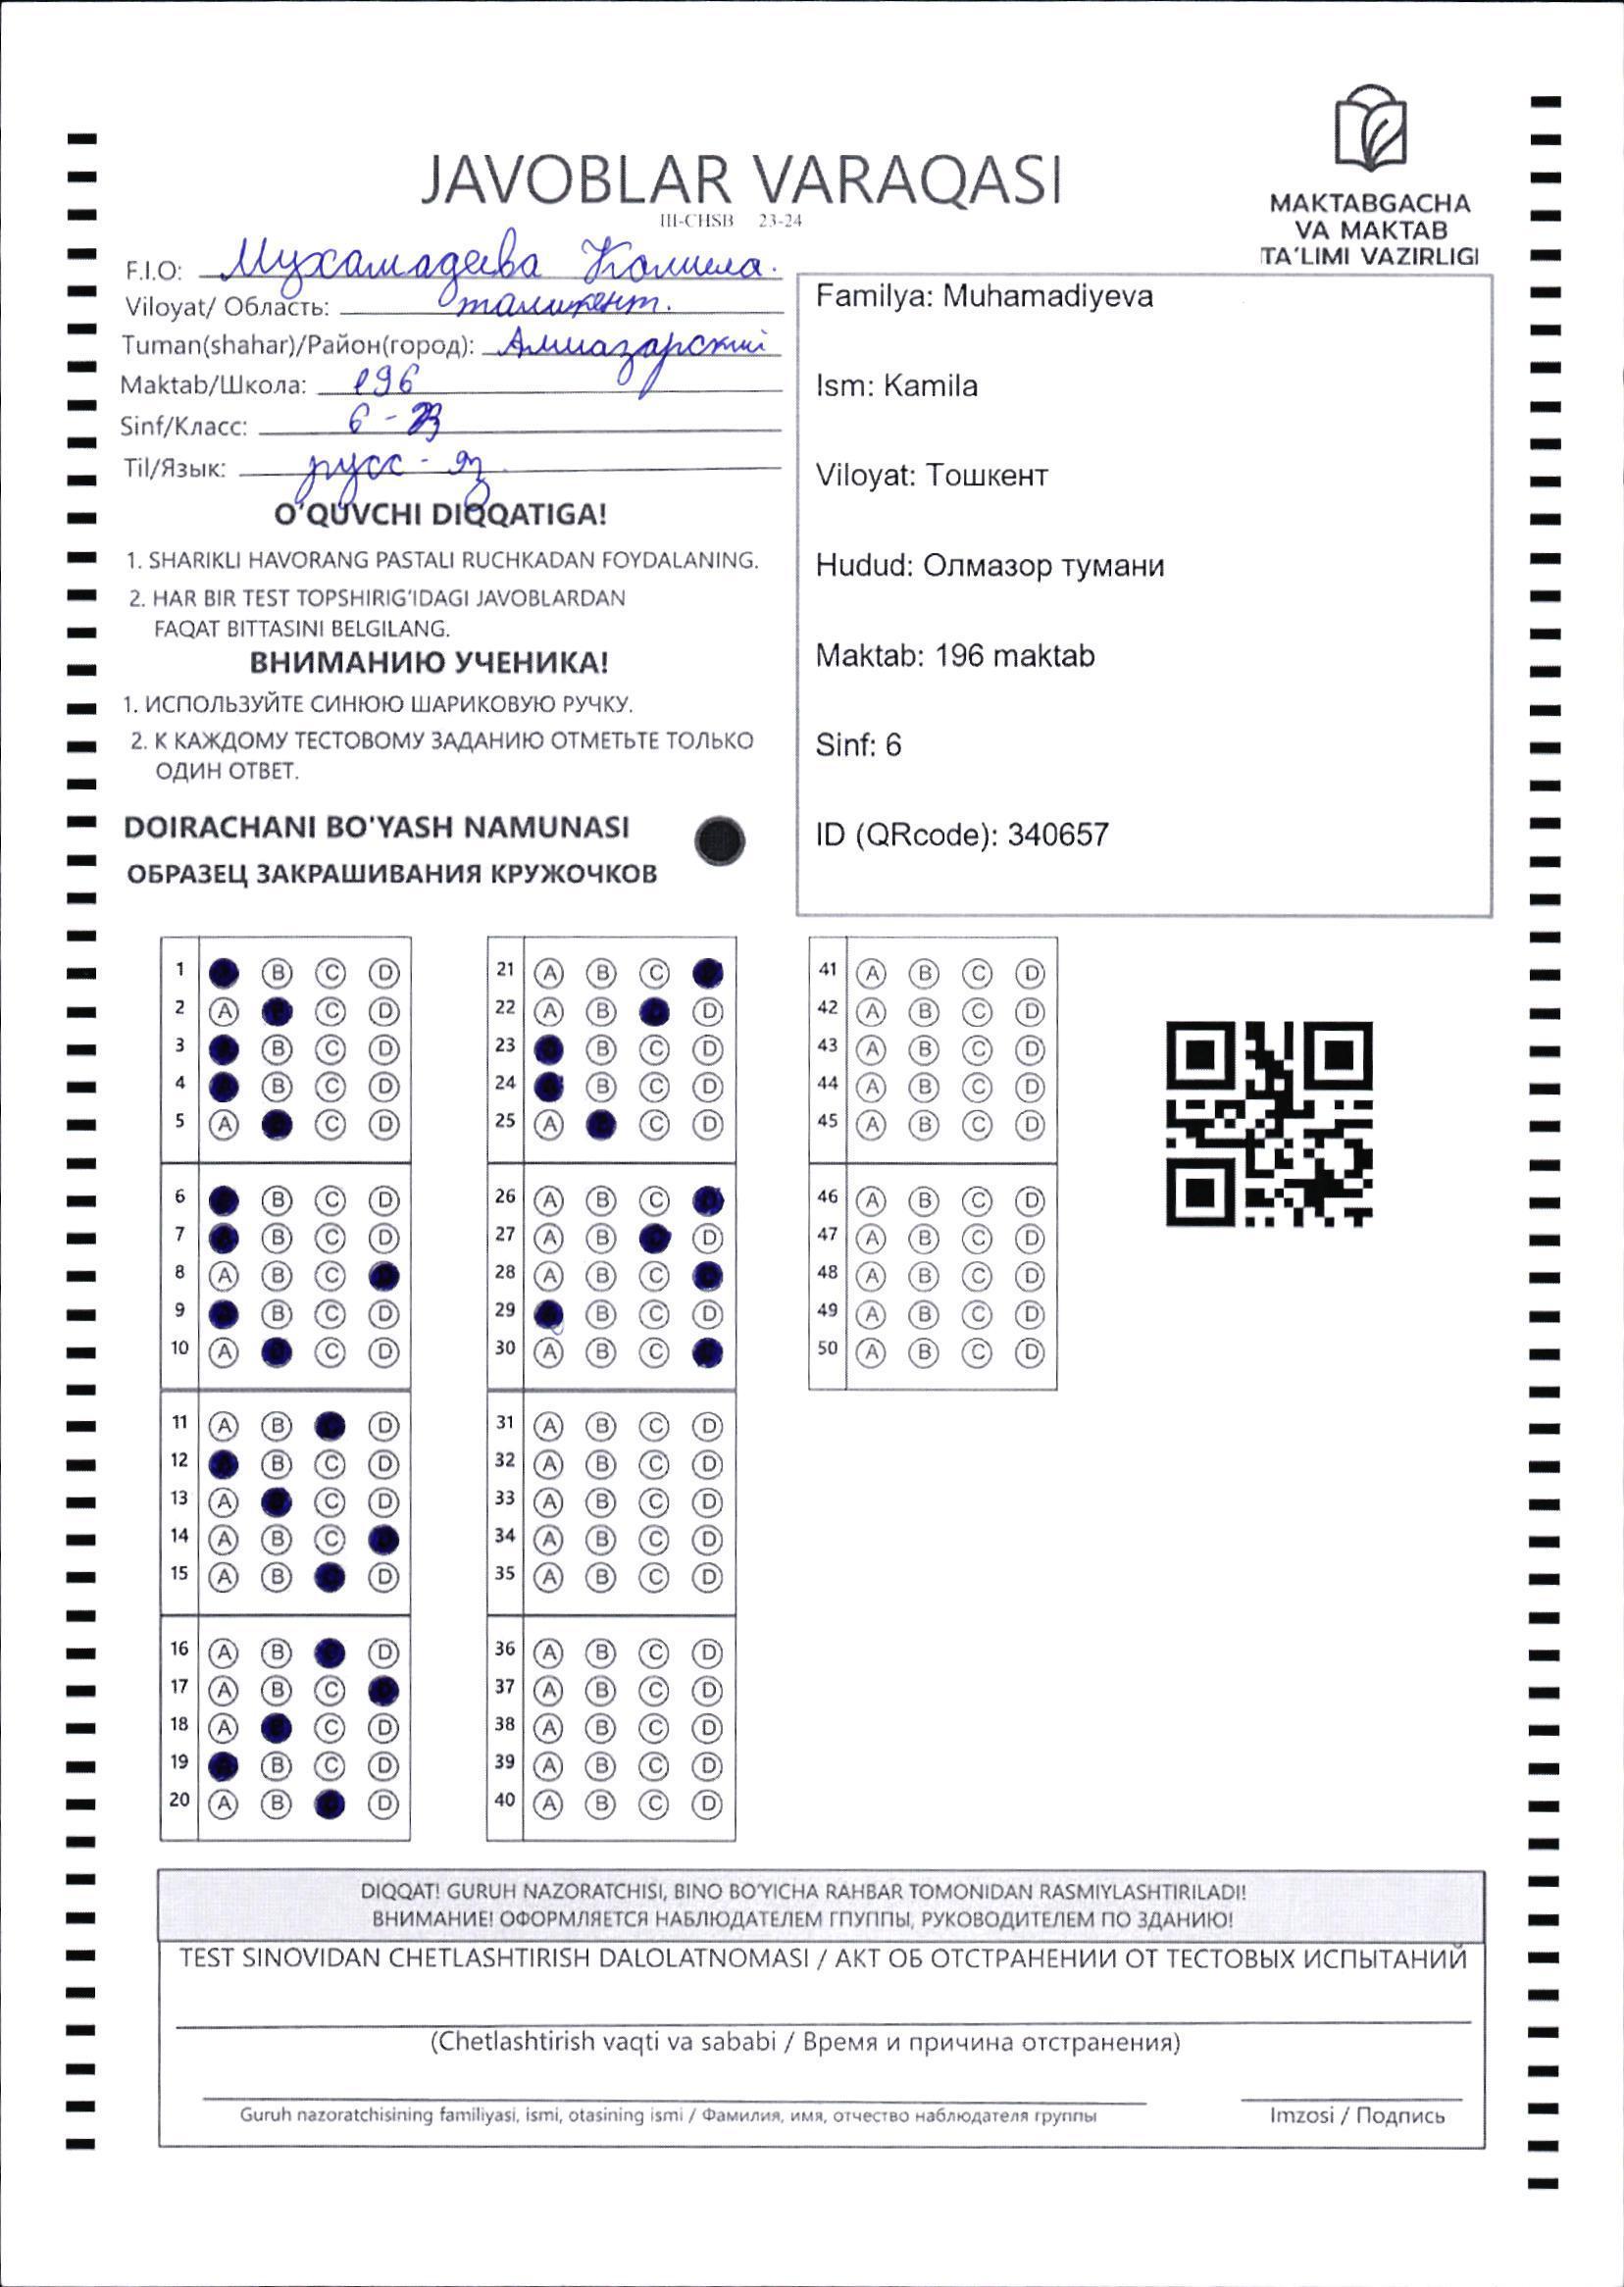 JAVOBLAR VARAQASI
III-CHSB 23-24
MAKTABGACHA
VA MAKTAB
TA'LIMI VAZIRLIGI
F.I.O: Мухамадеева Камила.
Viloyat/ Область: ташкент.
Tuman(shahar)/Район(город): Алмазарский
Maktab/Школа: 196
Sinf/Класс: 6 -
Til/Язык: русс - яз
O'QUVCHI DIQQATIGA!
1. SHARIKLI HAVORANG PASTALI RUCHKADAN FOYDALANING.
2. HAR BIR TEST TOPSHIRIG'IDAGI JAVOBLARDAN
FAQAT BITTASINI BELGILANG.
ВНИМАНИЮ УЧЕНИКА!
1. ИСПОЛЬЗУЙТЕ СИНЮЮ ШАРИКОВУЮ РУЧКУ.
2. К КАЖДОМУ ТЕСТОВОМУ ЗАДАНИЮ ОТМЕТЬТЕ ТОЛЬКО
ОДИН ОТВЕТ.
DOIRACHANI BO'YASH NAMUNASI
ОБРАЗЕЦ ЗАКРАШИВАНИЯ КРУЖОЧКОВ
Familya: Muhamadiyeva
Ism: Kamila
Viloyat: Тошкент
Hudud: Олмазор тумани
Maktab: 196 maktab
Sinf: 6
ID (QRcode): 340657
1 B C D
2 A C D
3 B C D
4 B C D
5 A C D
6 B C D
7 B C D
8 A B C
9 B C D
10 A C D
11 A B D
12 B C D
13 A C D
14 A B C
15 A B D
16 A B D
17 A B C
18 A C D
19 B C D
20 A B D
21 A B C
22 A B D
23 B C D
24 B C D
25 A C D
26 A B C
27 A B D
28 A B C
29 B C D
30 A B C
31 A B C D
32 A B C D
33 A B C D
34 A B C D
35 A B C D
36 A B C D
37 A B C D
38 A B C D
39 A B C D
40 A B C D
41 A B C D
42 A B C D
43 A B C D
44 A B C D
45 A B C D
46 A B C D
47 A B C D
48 A B C D
49 A B C D
50 A B C D
DIQQAT! GURUH NAZORATCHISI, BINO BO'YICHA RAHBAR TOMONIDAN RASMIYLASHTIRILADI!
ВНИМАНИЕ! ОФОРМЛЯЕТСЯ НАБЛЮДАТЕЛЕМ ГПУППЫ, РУКОВОДИТЕЛЕМ ПО ЗДАНИЮ!
TEST SINOVIDAN CHETLASHTIRISH DALOLATNOMASI / АКТ ОБ ОТСТРАНЕНИИ ОТ ТЕСТОВЫХ ИСПЫТАНИЙ
(Chetlashtirish vaqti va sababi / Время и причина отстранения)
Guruh nazoratchisining familiyasi, ismi, otasining ismi / Фамилия, имя, отчество наблюдателя группы
Imzosi / Подпись